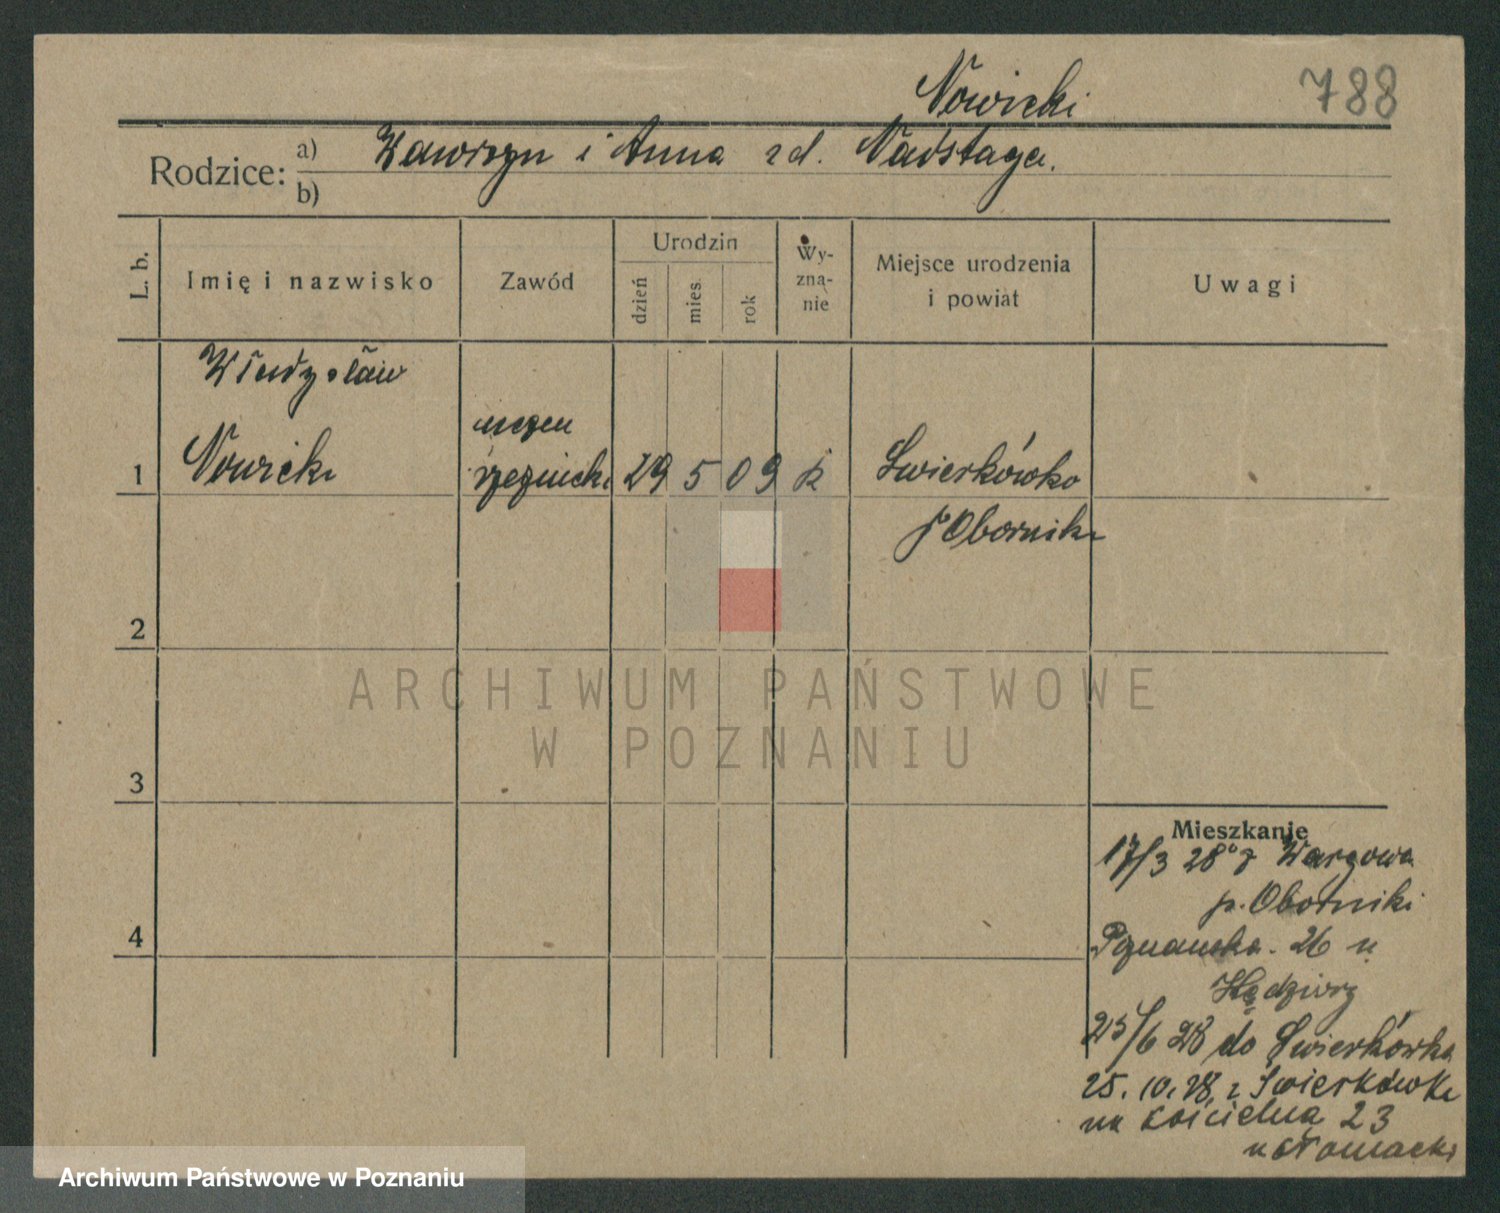 Nowicki
788
Rodzice: a) Wawrzyn i Anna zd. Nadstaga.
b)
L. b.
Imię i nazwisko
Zawód
Urodzin
dzień
mies.
rok
Wy-
zna-
nie
Miejsce urodzenia
i powiat
Uwagi
Władysław
1 Nowicki uczeń rzeźnicki 29 5 09 k Świerkówko
p Oborniki
2
3
4
ARCHIWUM PAŃSTWOWE
W POZNANIU
Mieszkanie
17/3 28 z Wargowa
p. Oborniki
26 u
25/6 28 do Świerkówka
25. 10. 28. z Świerkówka
na kościelna 23
Archiwum Państwowe w Poznaniu